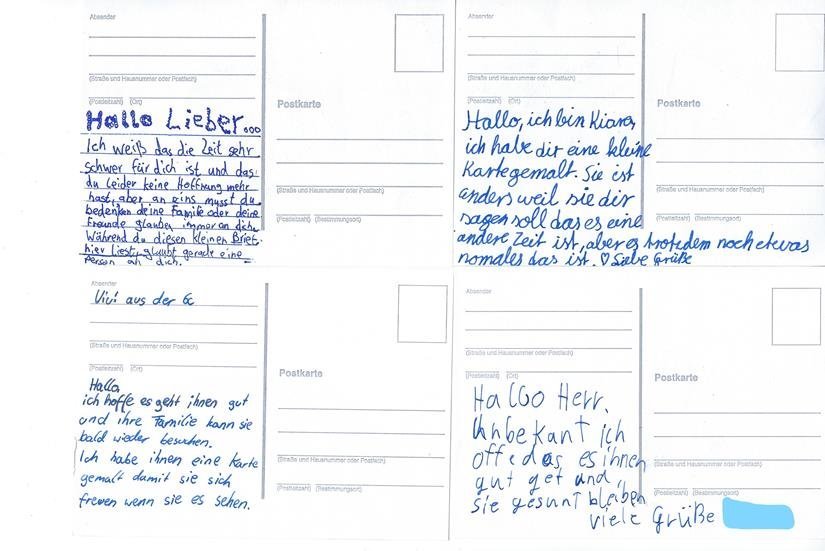 Absender
(Straße und Hausnummer oder Postfach)
(Postleitzahl) (Ort)
Postkarte
(Straße und Hausnummer oder Postfach)
(Postleitzahl) (Bestimmungsort)
Hallo Lieber...
Ich weiß das die Zeit sehr
schwer für dich ist und das
du leider keine Hoffnung mehr
hast, aber an eins musst du
bedenken deine Familie oder deine
Freunde glauben immer an dich.
Während du diesen kleinen Brief
hier liest, glaubt gerade eine
Person an dich.
Absender
(Straße und Hausnummer oder Postfach)
(Postleitzahl) (Ort)
Postkarte
(Straße und Hausnummer oder Postfach)
(Postleitzahl) (Bestimmungsort)
Hallo, ich bin Kiara,
ich habe dir eine kleine
Karte gemalt. Sie ist
anders weil sie dir
sagen soll das es eine
andere Zeit ist, aber es trotzdem noch etwas
nomales das ist. ♡ Liebe Grüße
Absender
Vivi aus der 6c
(Straße und Hausnummer oder Postfach)
(Postleitzahl) (Ort)
Postkarte
(Straße und Hausnummer oder Postfach)
(Postleitzahl) (Bestimmungsort)
Hallo,
ich hoffe es geht ihnen gut
und ihre Familie kann sie
bald wieder besuchen.
Ich habe ihnen eine Karte
gemalt damit sie sich
freuen wenn sie es sehen.
Absender
(Straße und Hausnummer oder Postfach)
(Postleitzahl) (Ort)
Postkarte
(Straße und Hausnummer oder Postfach)
(Postleitzahl) (Bestimmungsort)
Hallo Herr.
Unbekant ich
offe das es ihnen
gut get und
sie gesunt bleiben
viele Grüße